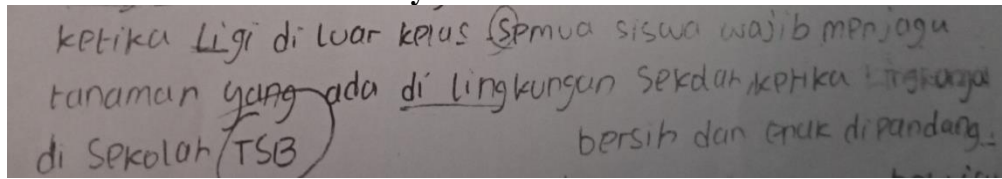 ketika Ligi di luar kelas Semua siswa wajib menjaga
tanaman yang ada di lingkungan Sekolah ketika lingkungan
di Sekolah TSB bersih dan enak dipandang.